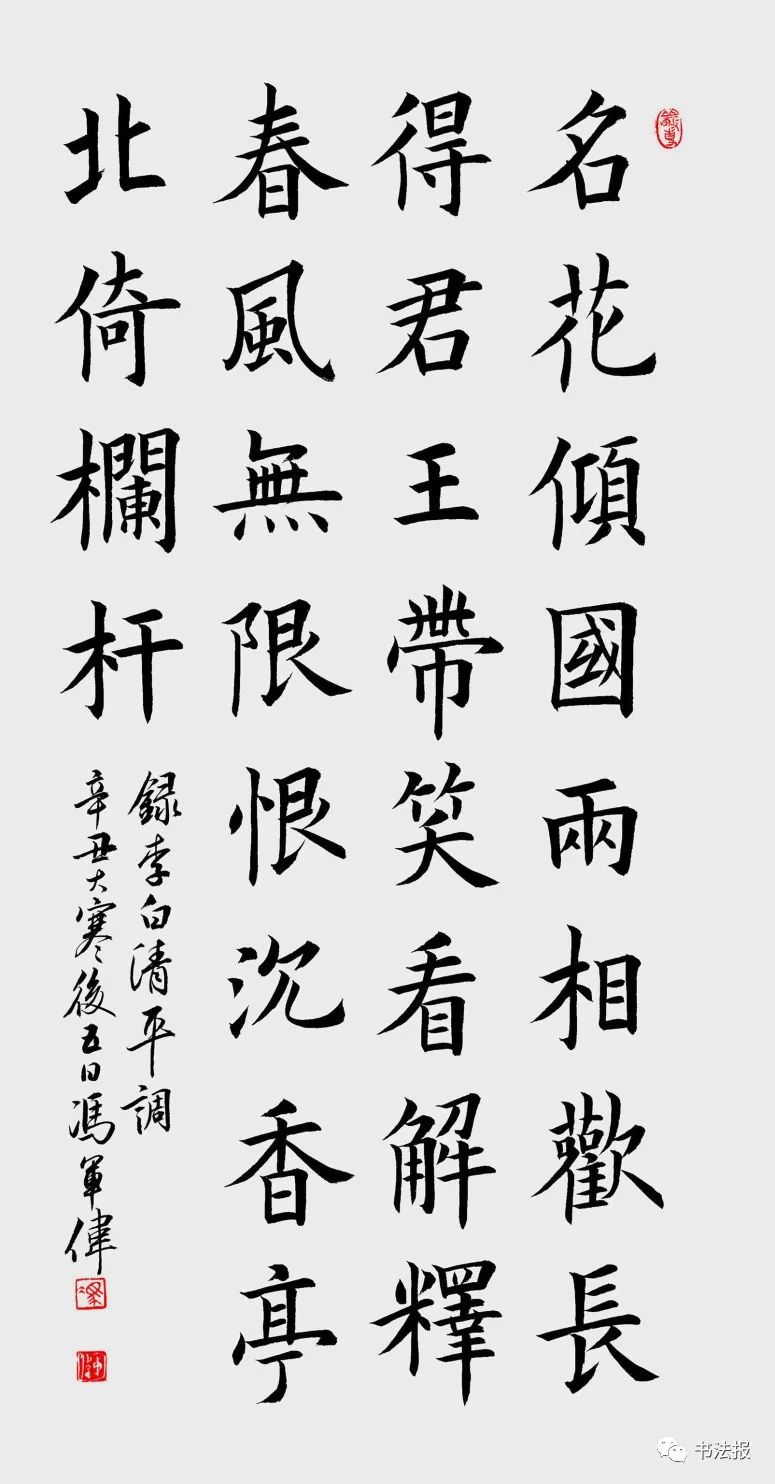 名花傾國兩相歡長
得君王帶笑看解釋
春風無限恨沉香亭
北倚欄杆
録李白清平調
辛丑大寒後五日馮軍偉
书法报